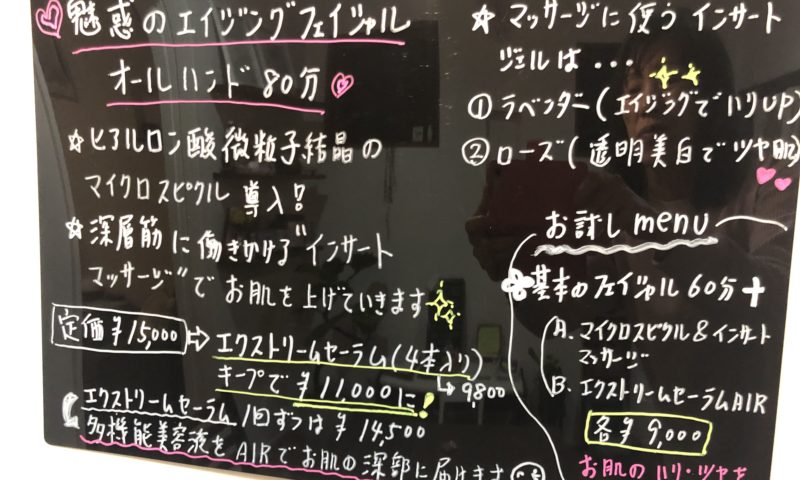 魅惑のエイジングフェイシャル
オールハンド80分
☆ヒアルロン酸微粒子結晶の
マイクロスピクル 導入!
☆深層筋に働きかける"インサート
マッサージ"でお肌を上げていきます
定価¥15,000 ⇒ エクストリームセーラム(4本入り)
↳9,800
キープで¥11,000に!
エクストリームセーラム1回ずつは¥14,500
多機能美容液をAIRでお肌の深部に届けます
☆マッサージに使うインサート
ジェルは・・・
①ラベンダー(エイジングでハリUP)
②ローズ(透明美白でツヤ肌)
お試しmenu
基本のフェイシャル60分+
A. マイクロスピクル&インサート
マッサージ
B. エクストリームセーラムAIR
各¥9,000
お肌のハリ・ツヤを